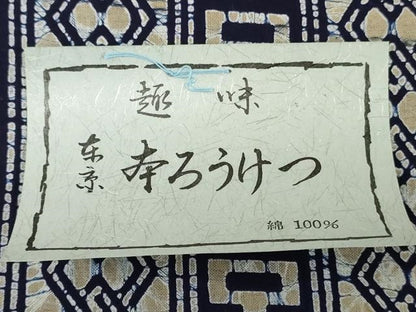 趣味
东京
本ろうけつ
綿 100%